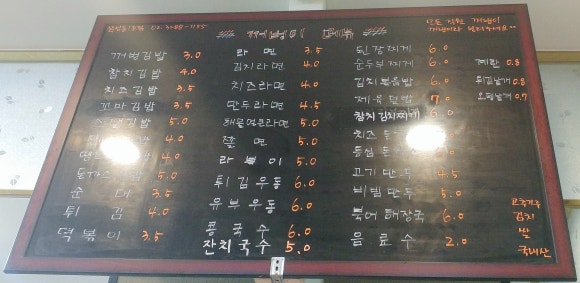 꺼벙김밥 3.0
참치김밥 4.0
치즈김밥 3.5
꼬마김밥 3.5
김밥 5.0
4.0
4.0
돈까스 5.0
순대 3.5
튀김 4.0
떡볶이 3.5
라면 3.5
김치라면 4.0
치즈라면 4.0
만두라면 4.5
해물짬뽕라면 5.0
쫄면 5.0
라볶이 5.0
튀김우동 6.0
유부우동 6.0
콩국수 6.0
잔치국수 5.0
된장찌개 6.0
순두부찌개 6.0
김치볶음밥 6.0
제육덮밥 7.0
참치김치찌개 6.0
치즈
등심
고기만두 4.5
비빔만두 5.0
북어해장국 6.0
음료수 2.0
계란 0.8
튀김낱개 0.8
오뎅낱개 0.7
고춧가루
김치
쌀
국내산